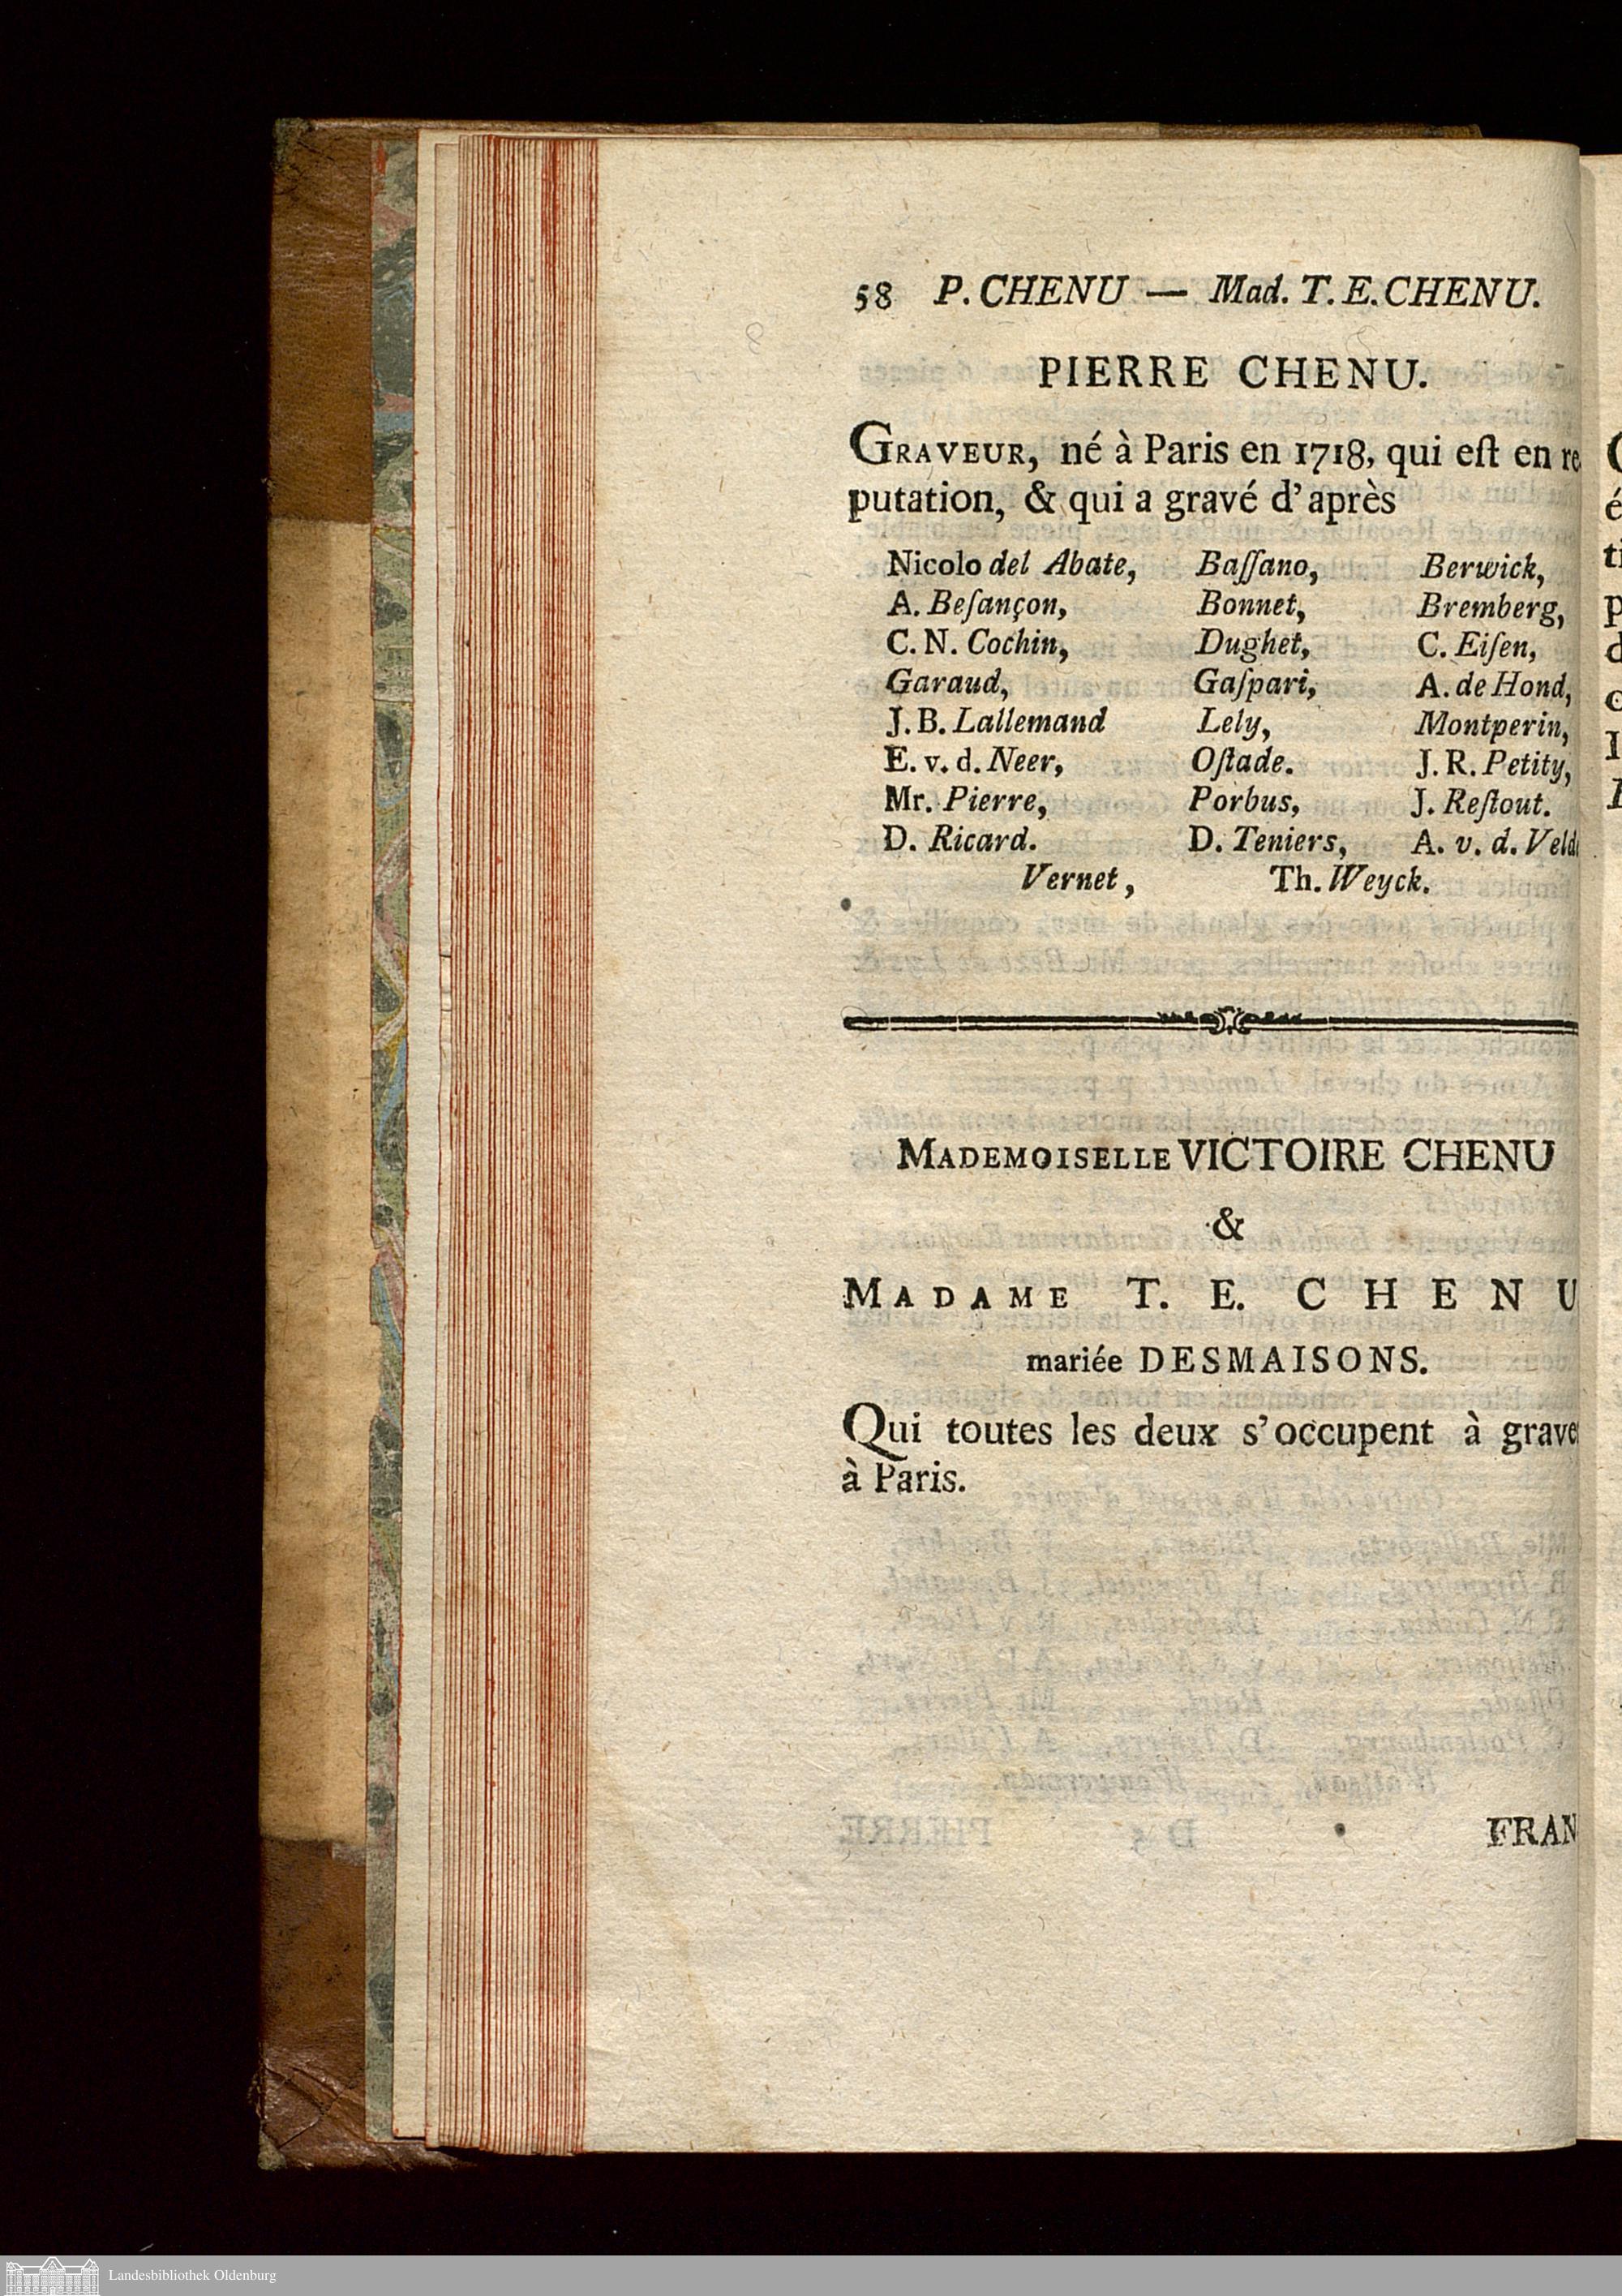 58 P. CHENU — Mad. T. E. CHENU.
PIERRE CHENU.
GRAVEUR, né à Paris en 1718, qui eſt en re
putation, & qui a gravé d'après
Nicolo del Abate, Baſſano, Berwick,
A. Beſançon, Bonnet, Bremberg,
C. N. Cochin, Dughet, C. Eiſen,
Garaud, Gaſpari, A. de Hond,
J. B. Lallemand Lely, Montperin,
E. v. d. Neer, Oſtade. J. R. Petity,
Mr. Pierre, Porbus, J. Reſtout.
D. Ricard. D. Teniers, A. v. d. Veld
Vernet, Th. Weyck.
MADEMOISELLE VICTOIRE CHENU
&
MADAME T. E. CHENU
mariée DESMAISONS.
Qui toutes les deux s'occupent à grave
à Paris.
FRAN
Landesbibliothek Oldenburg